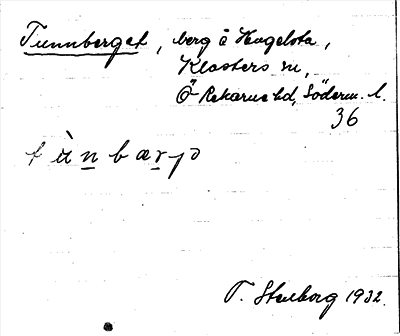 Tunnberget, berg å Hugelsta,
Klosters sn,
Ö Rekarne hd, Söderm. l.
36
1932.